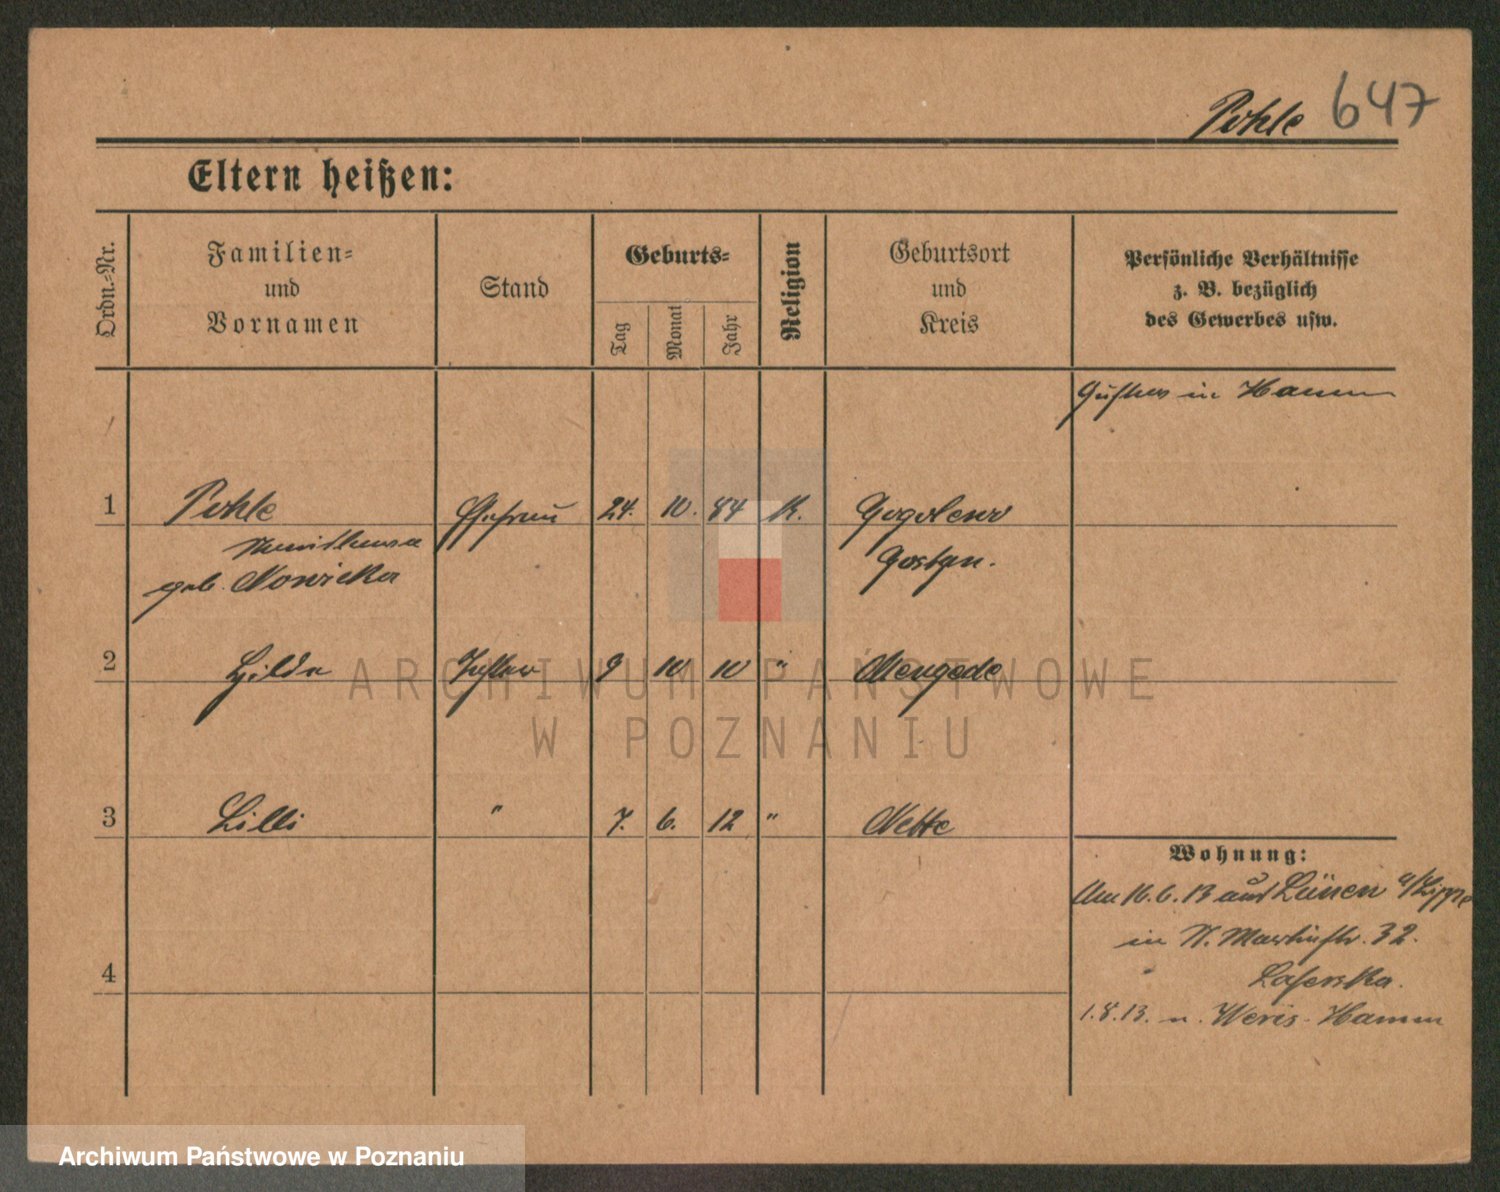 Pohle 647
Eltern heißen:
Ordn.=Nr.
Familien=
und
Vornamen
Stand
Geburts=
Tag
Monat
Jahr
Religion
Geburtsort
und
Kreis
Persönliche Verhältnisse
z. B. bezüglich
des Gewerbes usw.
in Hamm
1 Pohle Ehefrau 24. 10. 84 K. Gogolewo
geb. Nowicka Gostyn.
2 Hilda Tochter 9 10 10 " Mengede
3 Lilli " 7. 6. 12 " Nette
Wohnung:
Am 16.6.13 aus Lünen a/Lippe
in St. Martinstr. 32.
4
1.8.13. n. Weris-Hamm
ARCHIWUM PAŃSTWOWE
W POZNANIU
Archiwum Państwowe w Poznaniu